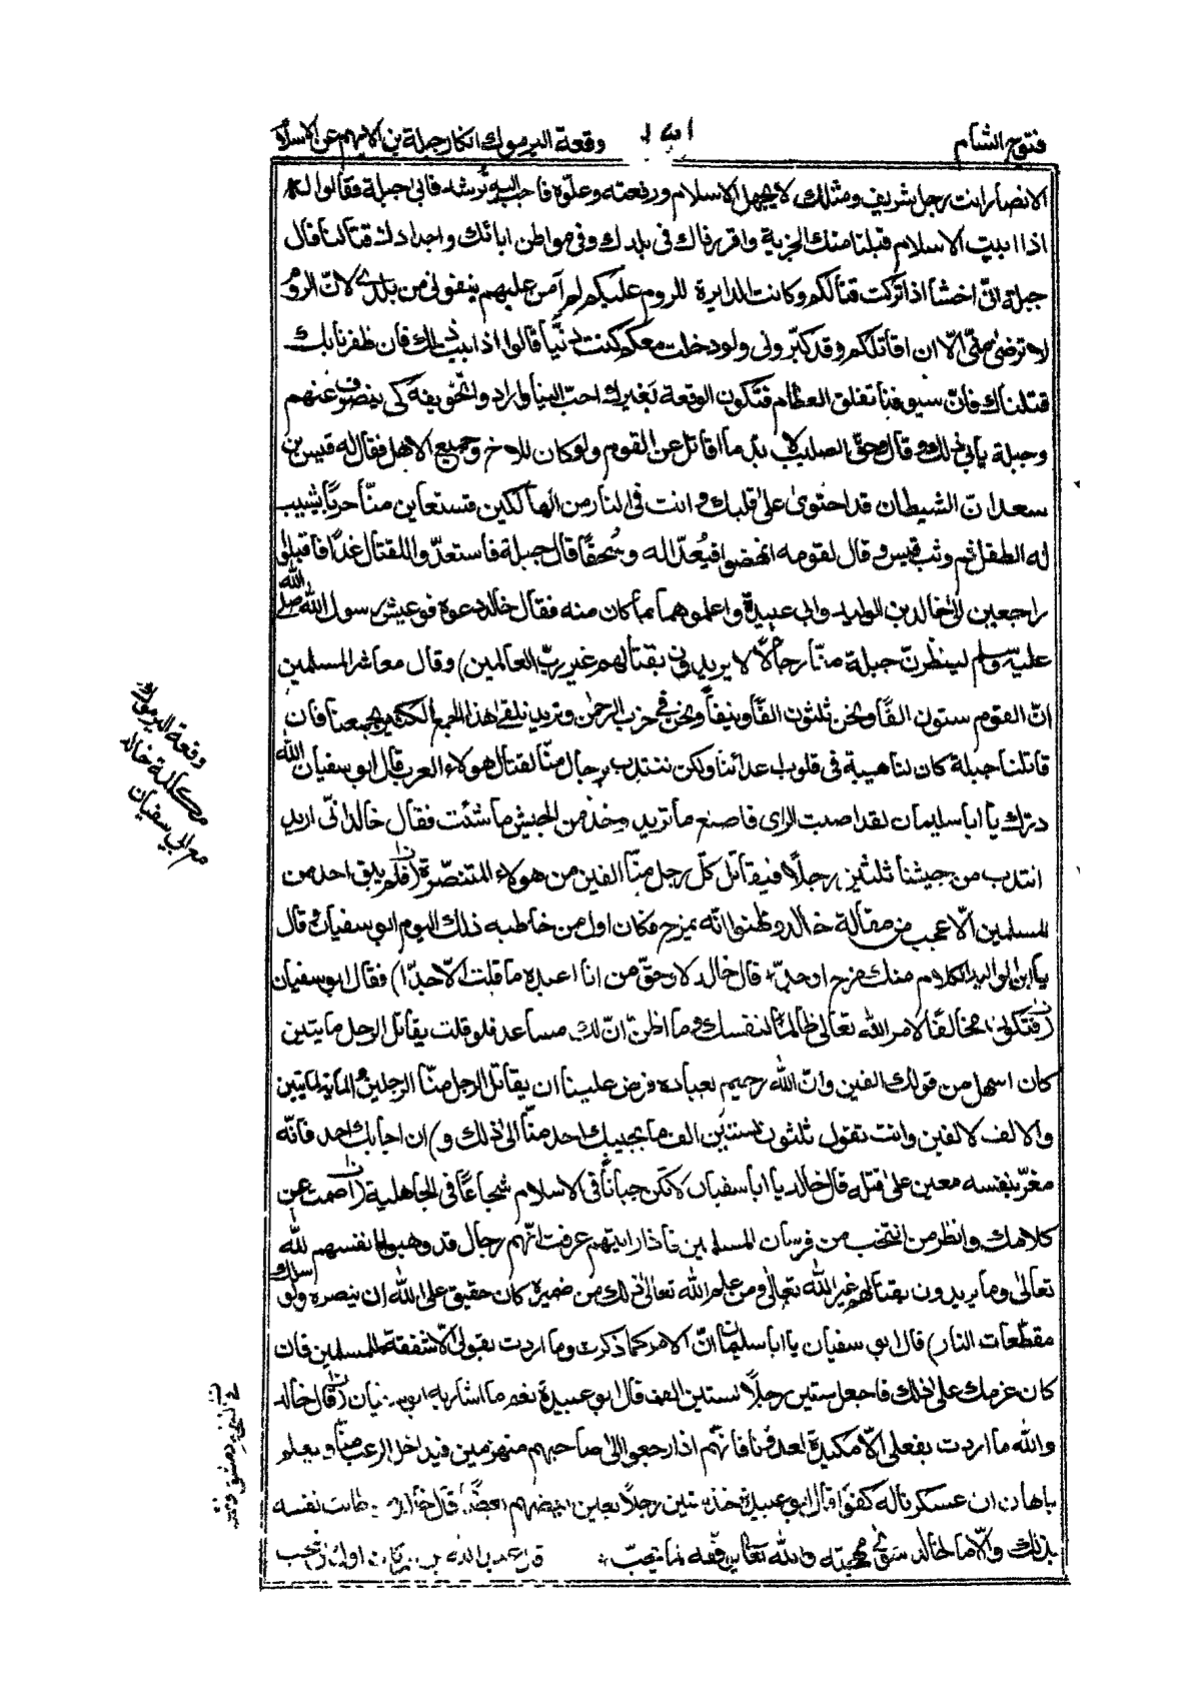 فتوح الشام
وقعة اليرموك انكار جبلة بن الايهم عن الاسلام
الانصار انت رجل شريف ومثلك لا يجهل الاسلام ورفعته وعلوه فاجب اليه ترشد فابى جبلة فقالوا له
اذا ابيت الاسلام قبلنا منك الجزية واقررناك فى بلدك وفى مواطن ابائك واجدادك قتالنا قال
جبلة انّى اخشا اذا تركت قتالكم وكانت الدايرة للروم عليكم لم آمن عليهم ينفونى من بلدى لانّ الروم
لا ترضىٰ منّى الّا ان اقاتلكم وقد كبّرونى ولو دخلت معكم كنت دنيّاً قالوا اذا ابيت ذلك فان ظفرنا بك
قتلناك فانّ سيوفنا تفلق العظام فتكون الوقعة بغيرك احبّ الينا وارادوا تخويفه كى ينصرف عنهم
وجبلة يأبى ذلك وقال وحقّ الصليب لا بدّ ما اقاتل عن القوم ولو كان للاخ وجميع الاهل فقال له قيس بن
سعد انّ الشيطان قد احتوىٰ علىٰ قلبك وانت فى النار من الهالكين فستعاين منّا حرباً يشيب
له الطفل ثم وثب قيس وقال لقومه انهضوا فبُعدًا له وسُحقًا قال جبلة فاستعدّوا للقتال غدًا فاقبلوا
راجعين الىٰ خالد بن الوليد وابى عبيدة واعلموهما بما كان منه فقال خالد دعوه فوعيش رسول الله صلى الله
عليه وسلم لينظرنّ جبلة منّا رجالًا لا يريدون بقتالهم غير ربّ العالمين) وقال معاشر المسلمين
انّ القوم ستون الفًا ونحن ثلثون الفًا وينفاً ونحن فى حزب الرحمٰن ونريد نلقى هذا الجمع الكثير بجمعنا فان
قاتلنا جبلة كان لنا هيبة فى قلوب اعدائنا ولكن ننتدب رجال منّا لقتال هولاء العرب قال ابو سفيان لله
درّك يا ابا سليمان لقد اصبت الراى فاصنع ما تريد وخذ من الجيش ما شئت فقال خالد انّى اريد
انتدب من جيشنا ثلثين رجلًا فيقاتل كلّ رجل منّا الفين من هولاء المتنصّرة (فلم يبق احد من
المسلمين الّا عجب من مقالة خالد وظنوا انّه يمزح فكان اول من خاطبه ذلك اليوم ابو سفيان قال
يا بن الوليد الكلام منك مزح ام جدّ قال خالد لا وحقّ من انا اعبده ما قلت الّا جدّا) فقال ابو سفيان
(فتكون مخالفًا لامر الله تعالى ظالمًا لنفسك وما اظنّ انّ لك مساعد فلو قلت يقاتل الرجل مايتين
كان اسهل من قولك الفين وانّ الله رحيم بعباده فرض علينا ان يقاتل الرجل منّا الرجلين والماية لمايتين
والالف لالفين وانت تقول ثلثون لستّين الف ما يجيبك احد منّا الى ذلك و) ان اجابك احد فانّه
مغرّ بنفسه معين علىٰ قتله قال خالد يا ابا سفيان لا تكن جباناً فى الاسلام شجاعًا فى الجاهلية (اصمت عن
كلامك وانظر من انتخب من فرسان المسلمين فاذا رايتهم عرفت انّهم رجال قد وهبوا انفسهم لله
تعالىٰ وما يريدون بقتالهم غير الله تعالى ومن علم الله تعالىٰ ذلك من ضميره كان حقيق على الله ان ينصره ولو سلك
مقطّعات النار) قال ابو سفيان يا ابا سليمان انّ الامر كما ذكرت وما اردت بقولى الّا شفقة للمسلمين فان
كان عزمك على ذلك فاجعل ستين رجلًا لستين الف قال ابو عبيدة نعم ما اشار به ابو سفيان (قال خالد
والله ما اردت بفعلى الّا مكيدة لعدونا فانّهم اذا رجعوا الى صاحبهم منهزمين فيداخل الرعب منّا ويعلم
باهان ان عسكرنا له كفوًا قال ابو عبيدة خذ ستين رجلًا بعين بعضهم بعضًا قال خالد نفسه
بذلك والله تعالى
وقعة اليرموك
مكالمة خالد
مع ابى سفيان